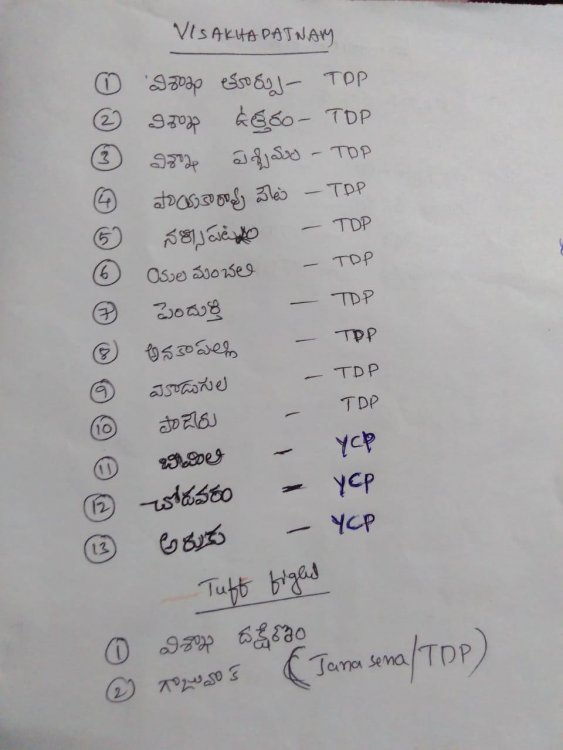 VISAKHAPATNAM
1 విశాఖ తూర్పు - TDP
2 విశాఖ ఉత్తరం - TDP
3 విశాఖ పశ్చిమం - TDP
4 పాయకారావు పేట - TDP
5 నర్సీపట్నం - TDP
6 యలమంచలి - TDP
7 పెందుర్తి - TDP
8 అనకాపల్లి - TDP
9 మాడుగుల - TDP
10 పాడేరు - TDP
11 బిమిలి - YCP
12 చోడవరం - YCP
13 అరుకు - YCP
Tuff fight
1 విశాఖ దక్షిణం
2 గాజువాక (Janasena/TDP)